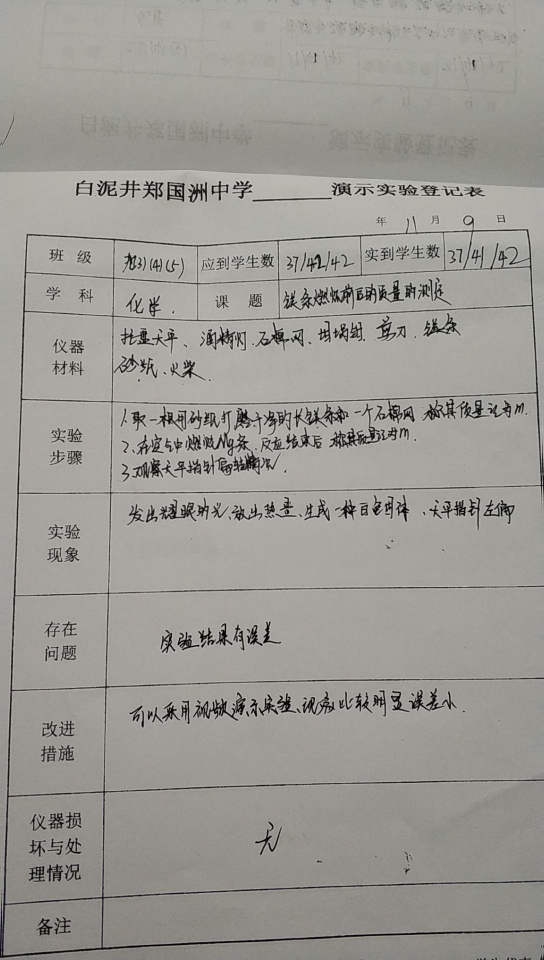 白泥井郑国洲中学______演示实验登记表
年 11 月 9 日
班 级 九(3)(4)(5) 应到学生数 37/42/42 实到学生数 37/41/42
学 科 化学. 课 题 镁条燃烧前后的质量的测定
仪器材料 托盘天平、酒精灯.石棉网、坩埚钳.剪刀.镁条
砂纸、火柴.
实验步骤 1.取一根用砂纸打磨干净的长镁条和一个石棉网 称其质量记为m.
2.在空气中燃烧Mg条,反应结束后 称其质量记为m.
3.观察天平指针偏转情况.
实验现象 发出耀眼的光,放出热量、生成一种白色固体、天平指针左偏
存在问题 实验结果有误差
改进措施 可以采用视频演示实验、现象比较明显误差小.
仪器损坏与处理情况 无
备注